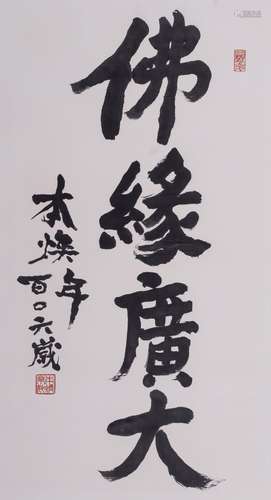 佛緣廣大
本煥年
百〇六歲